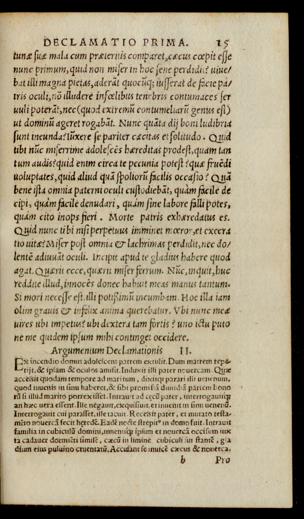 DECLAMATIO PRIMA. 15
tunæ suæ mala cum præteritis comparet, cæcus cœpit esse
nunc primum, quid non miser in hoc sene perdidit? uiue/
bat illi magna pietas, aderāt quocūq; iusserat de facie pa/
tris oculi, nō illudere infœlicibus tenebris contumaces ser
uuli poterāt, nec (quod extremū contumeliarū genus est)
ut dominū ageret rogabāt. Nunc quāta dij boni ludibria
sunt luxere se pariter cæcitas et solitudo. Quid
tibi nūc miserrime adolescēs hæreditas prodest, quam tan
tum audis? quid enim circa te pecunia potest? quæ
uoluptates, quid aliud quā spoliorū facilis occasio? Quā
bene ista omnia paterni oculi custodiebāt, quàm facile de
cipi, quàm facile denudari, quàm sine labore falli potes,
quàm cito inops fieri. Morte patris exhæredatus es.
Quid nunc tibi nisi perpetuus imminet mœror, et execra
tio uitæ? Miser post omnia & lachrimas perdidit, nec do/
lentē adiuuāt oculi. Incipit apud te gladius habere quod
agat. Quæris ecce, quæris miser ferrum. Nūc, inquit, huc
reddite illud, innocēs donec habuit meas manus tantum.
Si mori necesse est, illi potissimū incumbam. Hoc illa iam
olim grauis & infelix anima querebatur. Vbi nunc meæ
uires ubi impetus? ubi dextera tam fortis? uno ictu puto
ne me quidem ipsum mihi continget occidere.
Argumentum Declamationis II.
Ex incendio domus adolescens patrem extulit. Dum matrem repe/
tit, & ipsam & oculos amisit. Induxit illi pater nouercam. Quæ
accessit quodam tempore ad maritum, dixitq; parari illi uenenum,
quod iuuenis in sinu haberet, & sibi promissā dimidiā partem bono
rū si illud marito porrexisset. Intrauit ad cæcū pater, interrogauitq;
an hæc uera essent. Ille negauit, exquisiuit, et inuenit in sinu uenenū.
Interrogauit cui parasset, ille tacuit. Recessit pater, et mutato testa/
mēto nouercā fecit heredē. Eadē nocte strepit' in domo fuit. Intrauit
familia in cubiculū domini, inuenitq; ipsum et nouercā occisum iux
ta cadauer dormiēti similē, cæcū in limine cubiculi sui stantē, gla
dium eius puluino cruentatū. Accusant se inuicē cæcus & nouerca.
b Pro